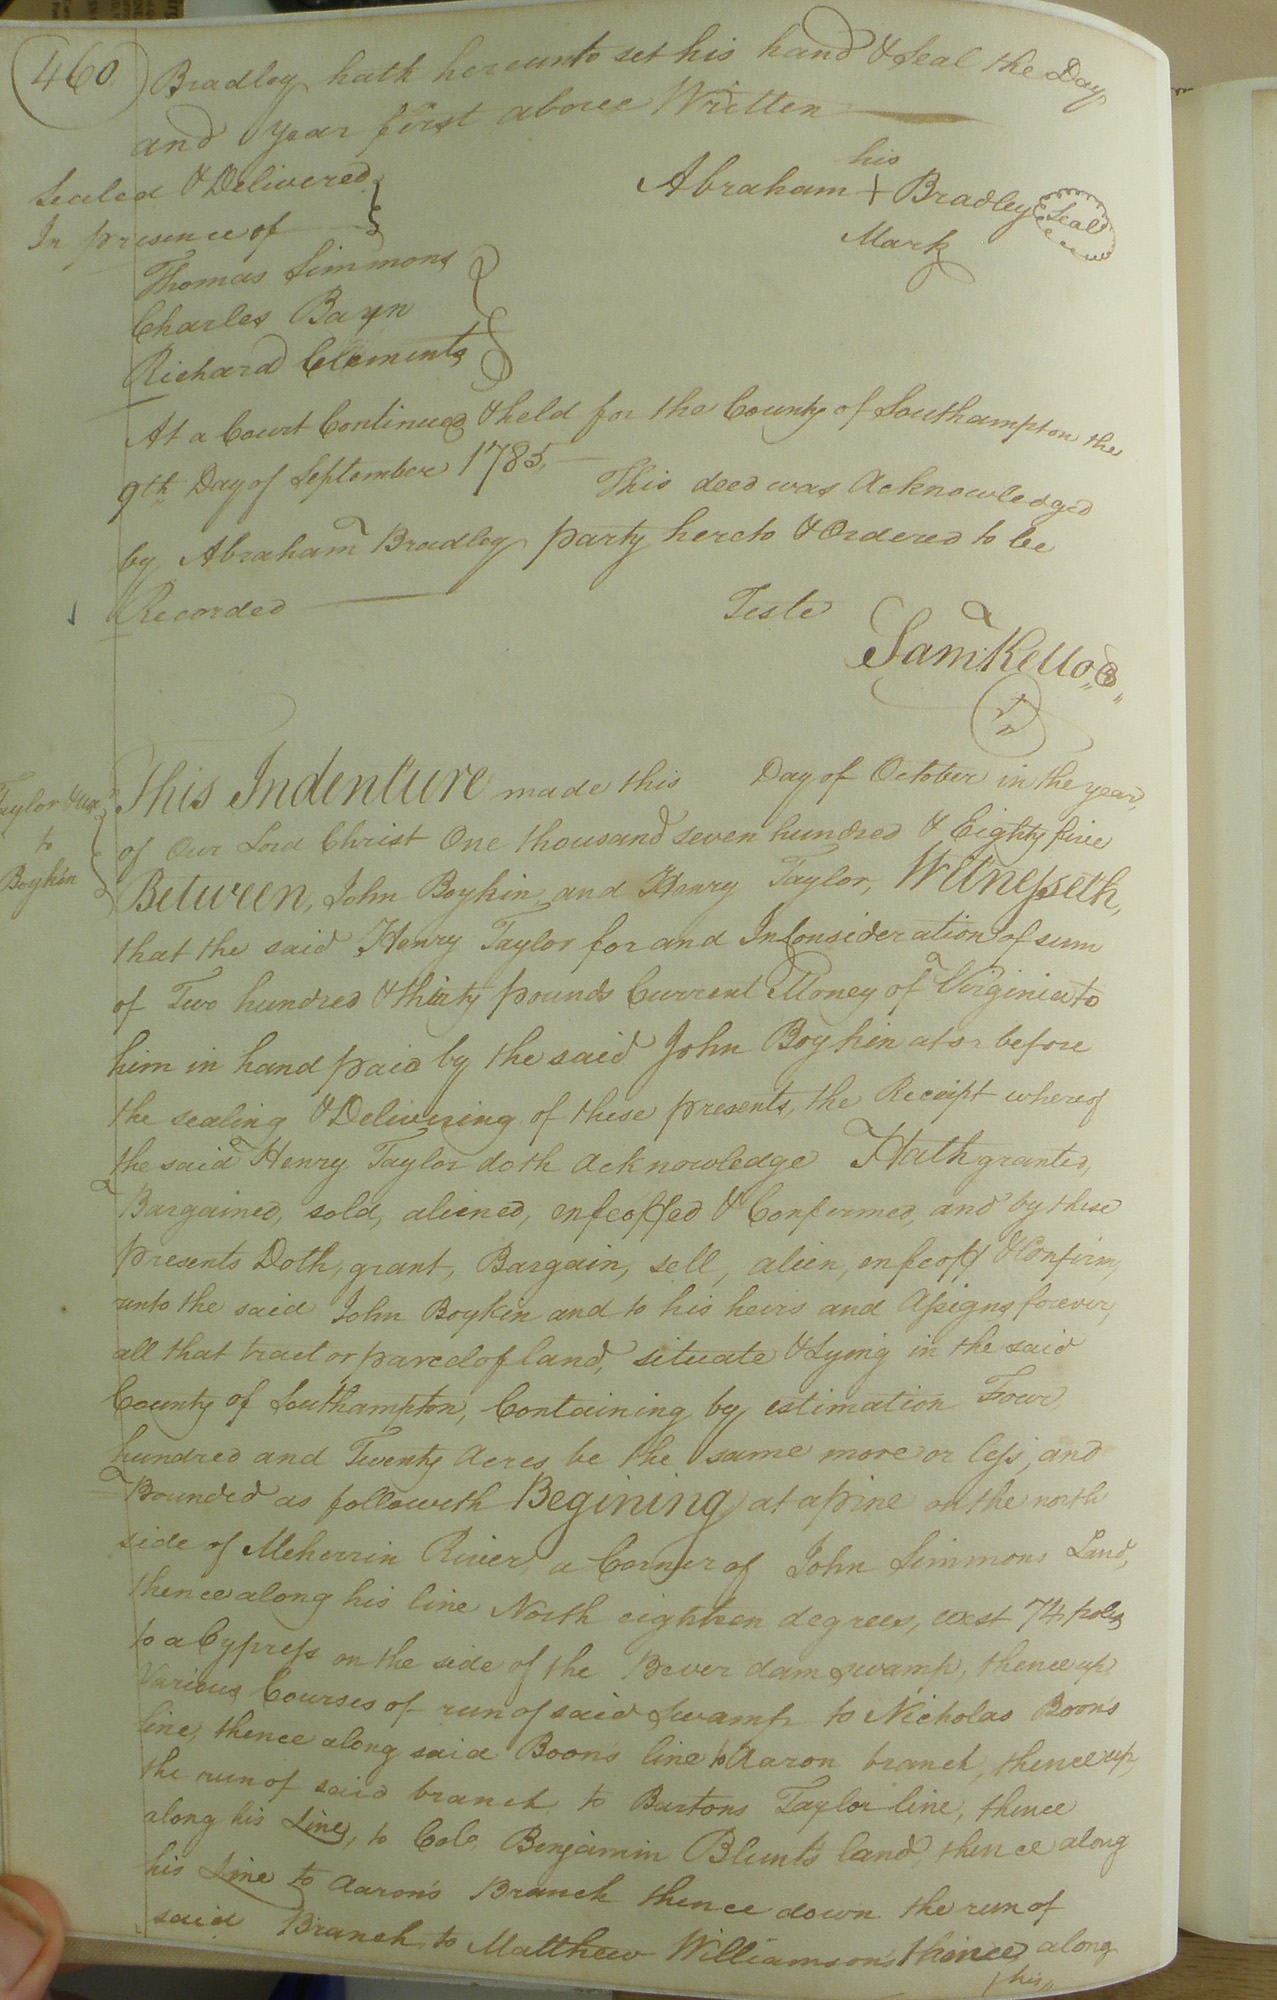 460
Bradley hath hereunto set his hand & Seal the Day
and year first above Written
Sealed & Delivered
In presence of
his
Abraham + Bradley Seal
Mark
Thomas Simmons
Charles Bayn
Richard Clements
At a Court Continued & held for the County of Southampton the
9th Day of September 1785
This deed was Acknowledged
by Abraham Bradley party hereto & Ordered to be
Recorded
Teste
Sam Kello
Taylor & ux
to
Boykin
This Indenture made this Day of October in the year
of Our Lord Christ One thousand seven hundred & Eighty five
Between, John Boykin and Henry Taylor, Witnesseth,
that the said Henry Taylor for and In Consideration of sum
of Two hundred & thirty pounds Current Money of Virginia to
him in hand paid by the said John Boykin at or before
the sealing & Delivering of these presents, the Receipt whereof
the said Henry Taylor doth acknowledge Hath granted,
Bargained, sold, aliened, enfeoffed & Confirmed, and by these
presents Doth, grant, Bargain, sell, alien, enfeoff & Confirm,
unto the said John Boykin and to his heirs and Assigns forever,
all that tract or parcel of land, situate & Lying in the said
County of Southampton, Containing by estimation Four
hundred and Twenty Acres be the same more or less, and
Bounded as followeth Begining at a pine on the north
side of Meherrin River, a Corner of John Simmons Land,
thence along his line North eighteen degrees, west 74 poles
to a Cypress on the side of the Bever dam swamp, thence up
Various Courses of run of said Swamp to Nicholas Boon's
line, thence along said Boon's line to Aaron branch, thence up
the run of said branch to Bartons Taylor line, thence
along his Line, to Colo. Benjamin Blunt's land, thence along
his Line to Aaron's Branch thence down the run of
said Branch to Matthew Williamson's thence along
his